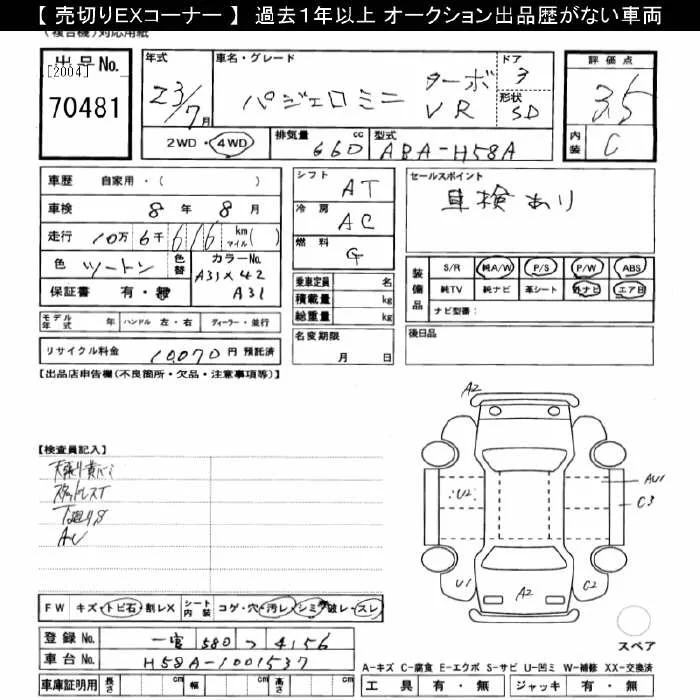 【 売切りEXコーナー 】 過去1年以上 オークション出品歴がない車両
(複合機)対応用紙
出品No.
[2004]
70481
年式
23/7月
車名・グレード
パジェロミニ ターボ VR
ドア
3
形状
SD
2WD・4WD
排気量 660 cc
型式 ABA-H58A
評価点
3.5
内装 C
車歴 自家用・( )
車検 8年 8月
走行 10万 6千 616 km マイル( )
色 ツートン
色替
カラーNo.
A31×42
A31
保証書 有・無
シフト AT
冷房 AC
燃料 G
乗車定員 名
積載量 kg
総重量 kg
セールスポイント
車検あり
装備品
S/R 純A/W P/S P/W ABS
純TV 純ナビ 革シート 外ナビ エアB
ナビ型番:
モデル年式 年 ハンドル 左・右 ディーラー・並行
リサイクル料金 10,070 円 預託済
名変期限
月 日
後日品
【出品店申告欄(不良箇所・欠品・注意事項等)】
【検査員記入】
スタッドレスT
T廻りS
AU
A2
U2
AU1
C3
U1
A2
C2
スペア
FW キズ・トビ石・割レX
シート内装 コゲ・穴・汚レ・シミ・破レ・スレ
登録No. 一宮 580 つ 4156
車台No. H58A-1001537
車庫証明用 長さ cm 幅 cm 高さ cm
A-キズ C-腐食 E-エクボ S-サビ U-凹ミ W-補修 XX-交換済
工具 有・無 ジャッキ 有・無